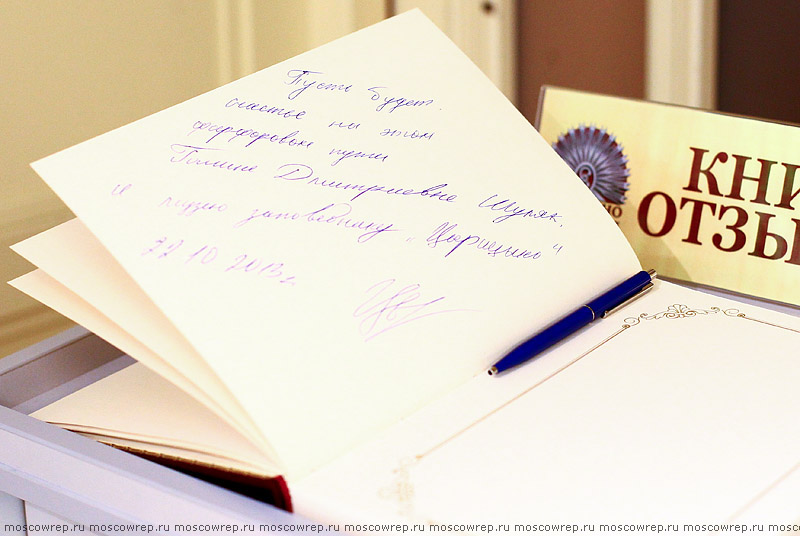 Пусть будет
счастье на этом
фарфоровом пути
Галине Дмитриевне Шуляк.
и музею заповеднику „Царицыно“
22 10 2013 г.
КНИ
ОТЗЫ
moscowrep.ru moscowrep.ru moscowrep.ru moscowrep.ru moscowrep.ru moscowrep.ru moscowrep.ru moscowrep.ru moscowrep.ru mosc